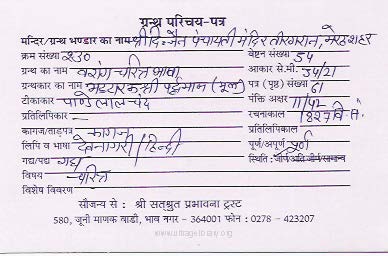 ग्रन्थ परिचय-पत्र
मन्दिर/ग्रन्थ भण्डार का नाम श्री दि॰ जैन पंचायती मंदिर तीरगरान, मेरठ शहर
क्रम संख्या २३० वेष्टन संख्या 54
ग्रन्थ का नाम वरांग चरित्र भाषा आकार से.मी. 34/21
ग्रन्थकार का नाम भट्टारक श्री वर्द्धमान (मूल) पत्र (पृष्ठ) संख्या 61
टीकाकार पाण्डे लालचंद पंक्ति अक्षर 11/42
प्रतिलिपिकार रचनाकाल 1827 वि॰ सं॰
कागज/ताड़पत्र कागज प्रतिलिपिकाल
लिपि व भाषा देवनागरी / हिन्दी पूर्ण/अपूर्ण पूर्ण
गद्य/पद्य गद्य स्थिति: जीर्ण/अति जीर्ण/सामान्य
विषय चरित्र
विशेष विवरण
सौजन्य से : श्री सत्श्रुत प्रभावना ट्रस्ट
580, जूनी माणक वाडी, भाव नगर - 364001 फोन : 0278 - 423207